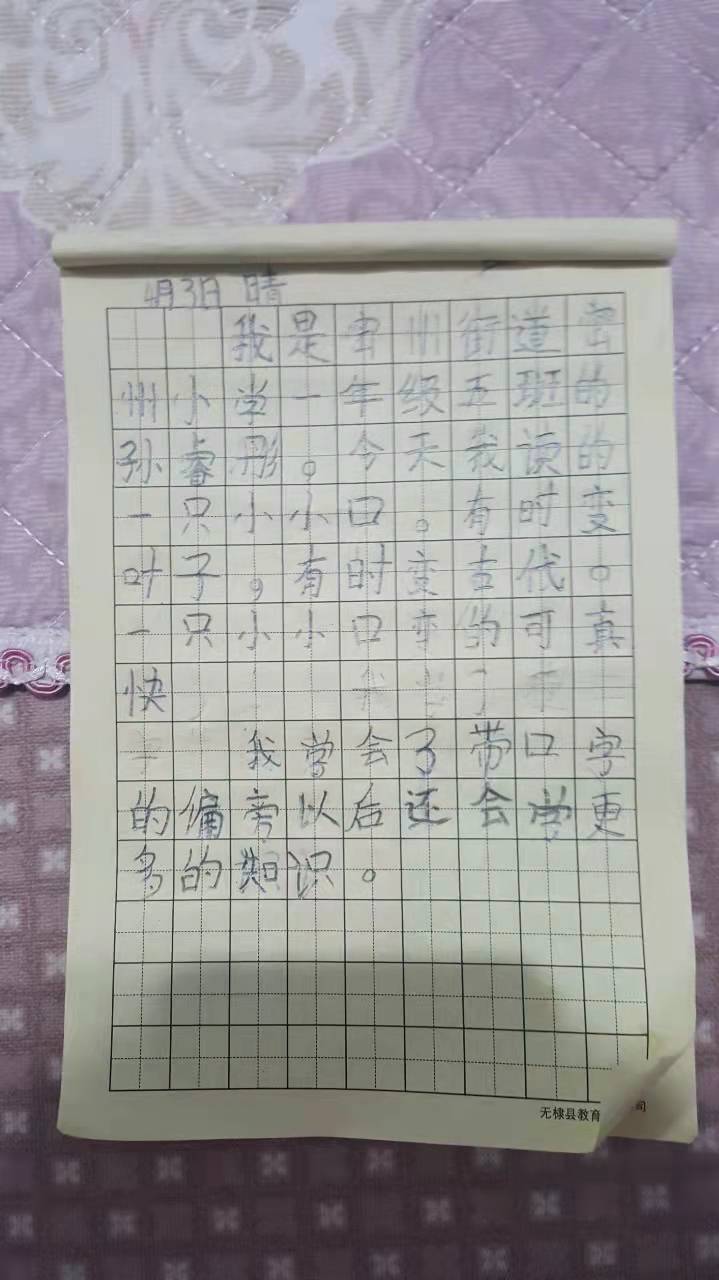 4月3日 晴
我是密州街道密
州小学一年级五班的
孙睿彤。今天我读的
一只小小口。有时变
叶子,有时变古代。
一只小小口变的可真
快
我学会了带口字
的偏旁以后还会学更
多的知识。
无棣县教育 司